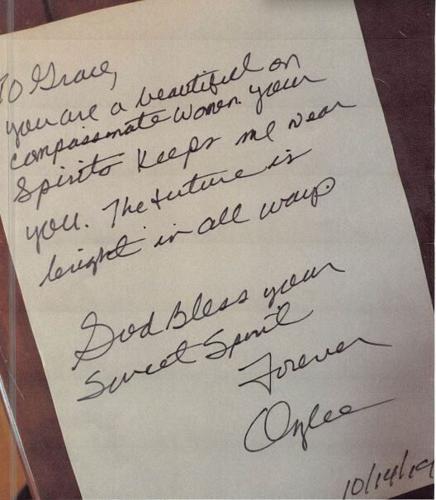 TO Grace,
you are a beautiful on
compassionate women. your
Spirits keeps me near
you. The future is
bright in all ways.
God Bless your
Sweet Spirit
Forever
10/14/19